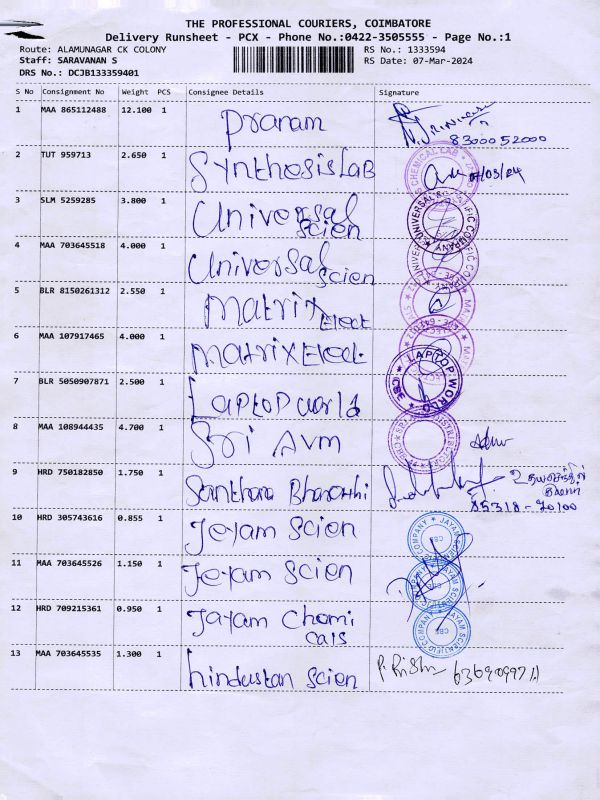 THE PROFESSIONAL COURIERS, COIMBATORE
Delivery Runsheet - PCX - Phone No.:0422-3505555 - Page No.:1
Route: ALAMUNAGAR CK COLONY RS No.: 1333594
Staff: SARAVANAN S RS Date: 07-Mar-2024
DRS No.: DCJB133359401
S No Consignment No Weight PCS Consignee Details Signature
1 MAA 865112488 12.100 1 Pranam
8300052000
2 TUT 959713 2.650 1 Synthesis Lab 07/03/24
CHEMICAL LAB
3 SLM 5259285 3.800 1 Universal
Scien
UNIVERSAL SCIENTIFIC COMPANY
4 MAA 703645518 4.000 1 Universal
Scien
5 BLR 8150261312 2.550 1 Matrix
Elect
6 MAA 107917465 4.000 1 Matrix Elect
7 BLR 5050907871 2.500 1 Laptop world
LAPTOP WORLD CBE
8 MAA 108944435 4.700 1 Sri Avm
9 HRD 750182850 1.750 1 Santhana Bharathi
85318-70100
10 HRD 305743616 0.855 1 Jeyam Scien
JAYAM SCIENTIFIC COMPANY CBE
11 MAA 703645526 1.150 1 Jeyam Scien
JAYAM SCIENTIFIC COMPANY CBE
12 HRD 709215361 0.950 1 Jayam Chemi
cals
JAYAM SCIENTIFIC COMPANY CBE
13 MAA 703645535 1.300 1 hindustan Scien